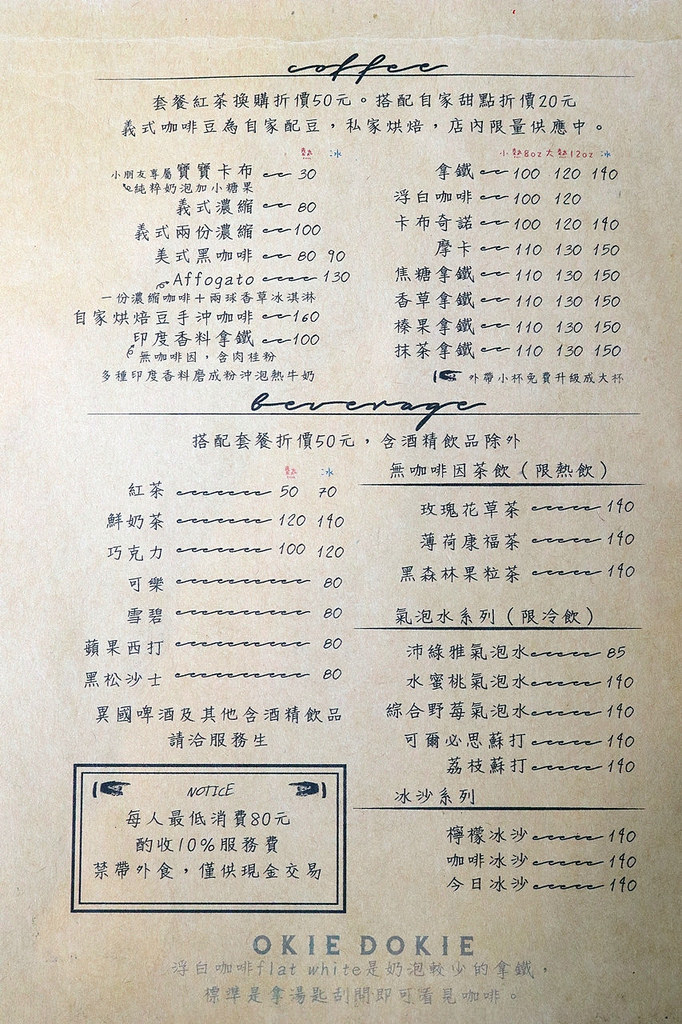 coffee
套餐紅茶換購折價50元。搭配自家甜點折價20元
義式咖啡豆為自家配豆，私家烘焙，店內限量供應中。
熱 冰
小朋友專屬寶寶卡布 30
純粹奶泡加小糖果
義式濃縮 80
義式兩份濃縮 100
美式黑咖啡 80 90
Affogato 130
一份濃縮咖啡＋兩球香草冰淇淋
自家烘焙豆手沖咖啡 160
印度香料拿鐵 100
無咖啡因，含肉桂粉
多種印度香料磨成粉沖泡熱牛奶
小熱8oz 大熱12oz 冰
拿鐵 100 120 140
浮白咖啡 100 120
卡布奇諾 100 120 140
摩卡 110 130 150
焦糖拿鐵 110 130 150
香草拿鐵 110 130 150
榛果拿鐵 110 130 150
抹茶拿鐵 110 130 150
外帶小杯免費升級成大杯
beverage
搭配套餐折價50元，含酒精飲品除外
熱 冰
紅茶 50 70
鮮奶茶 120 140
巧克力 100 120
可樂 80
雪碧 80
蘋果西打 80
黑松沙士 80
異國啤酒及其他含酒精飲品
請洽服務生
NOTICE
每人最低消費80元
酌收10%服務費
禁帶外食，僅供現金交易
無咖啡因茶飲（限熱飲）
玫瑰花草茶 140
薄荷康福茶 140
黑森林果粒茶 140
氣泡水系列（限冷飲）
沛綠雅氣泡水 85
水蜜桃氣泡水 140
綜合野莓氣泡水 140
可爾必思蘇打 140
荔枝蘇打 140
冰沙系列
檸檬冰沙 140
咖啡冰沙 140
今日冰沙 140
OKIE DOKIE
浮白咖啡flat white是奶泡較少的拿鐵，
標準是拿湯匙刮開即可看見咖啡。